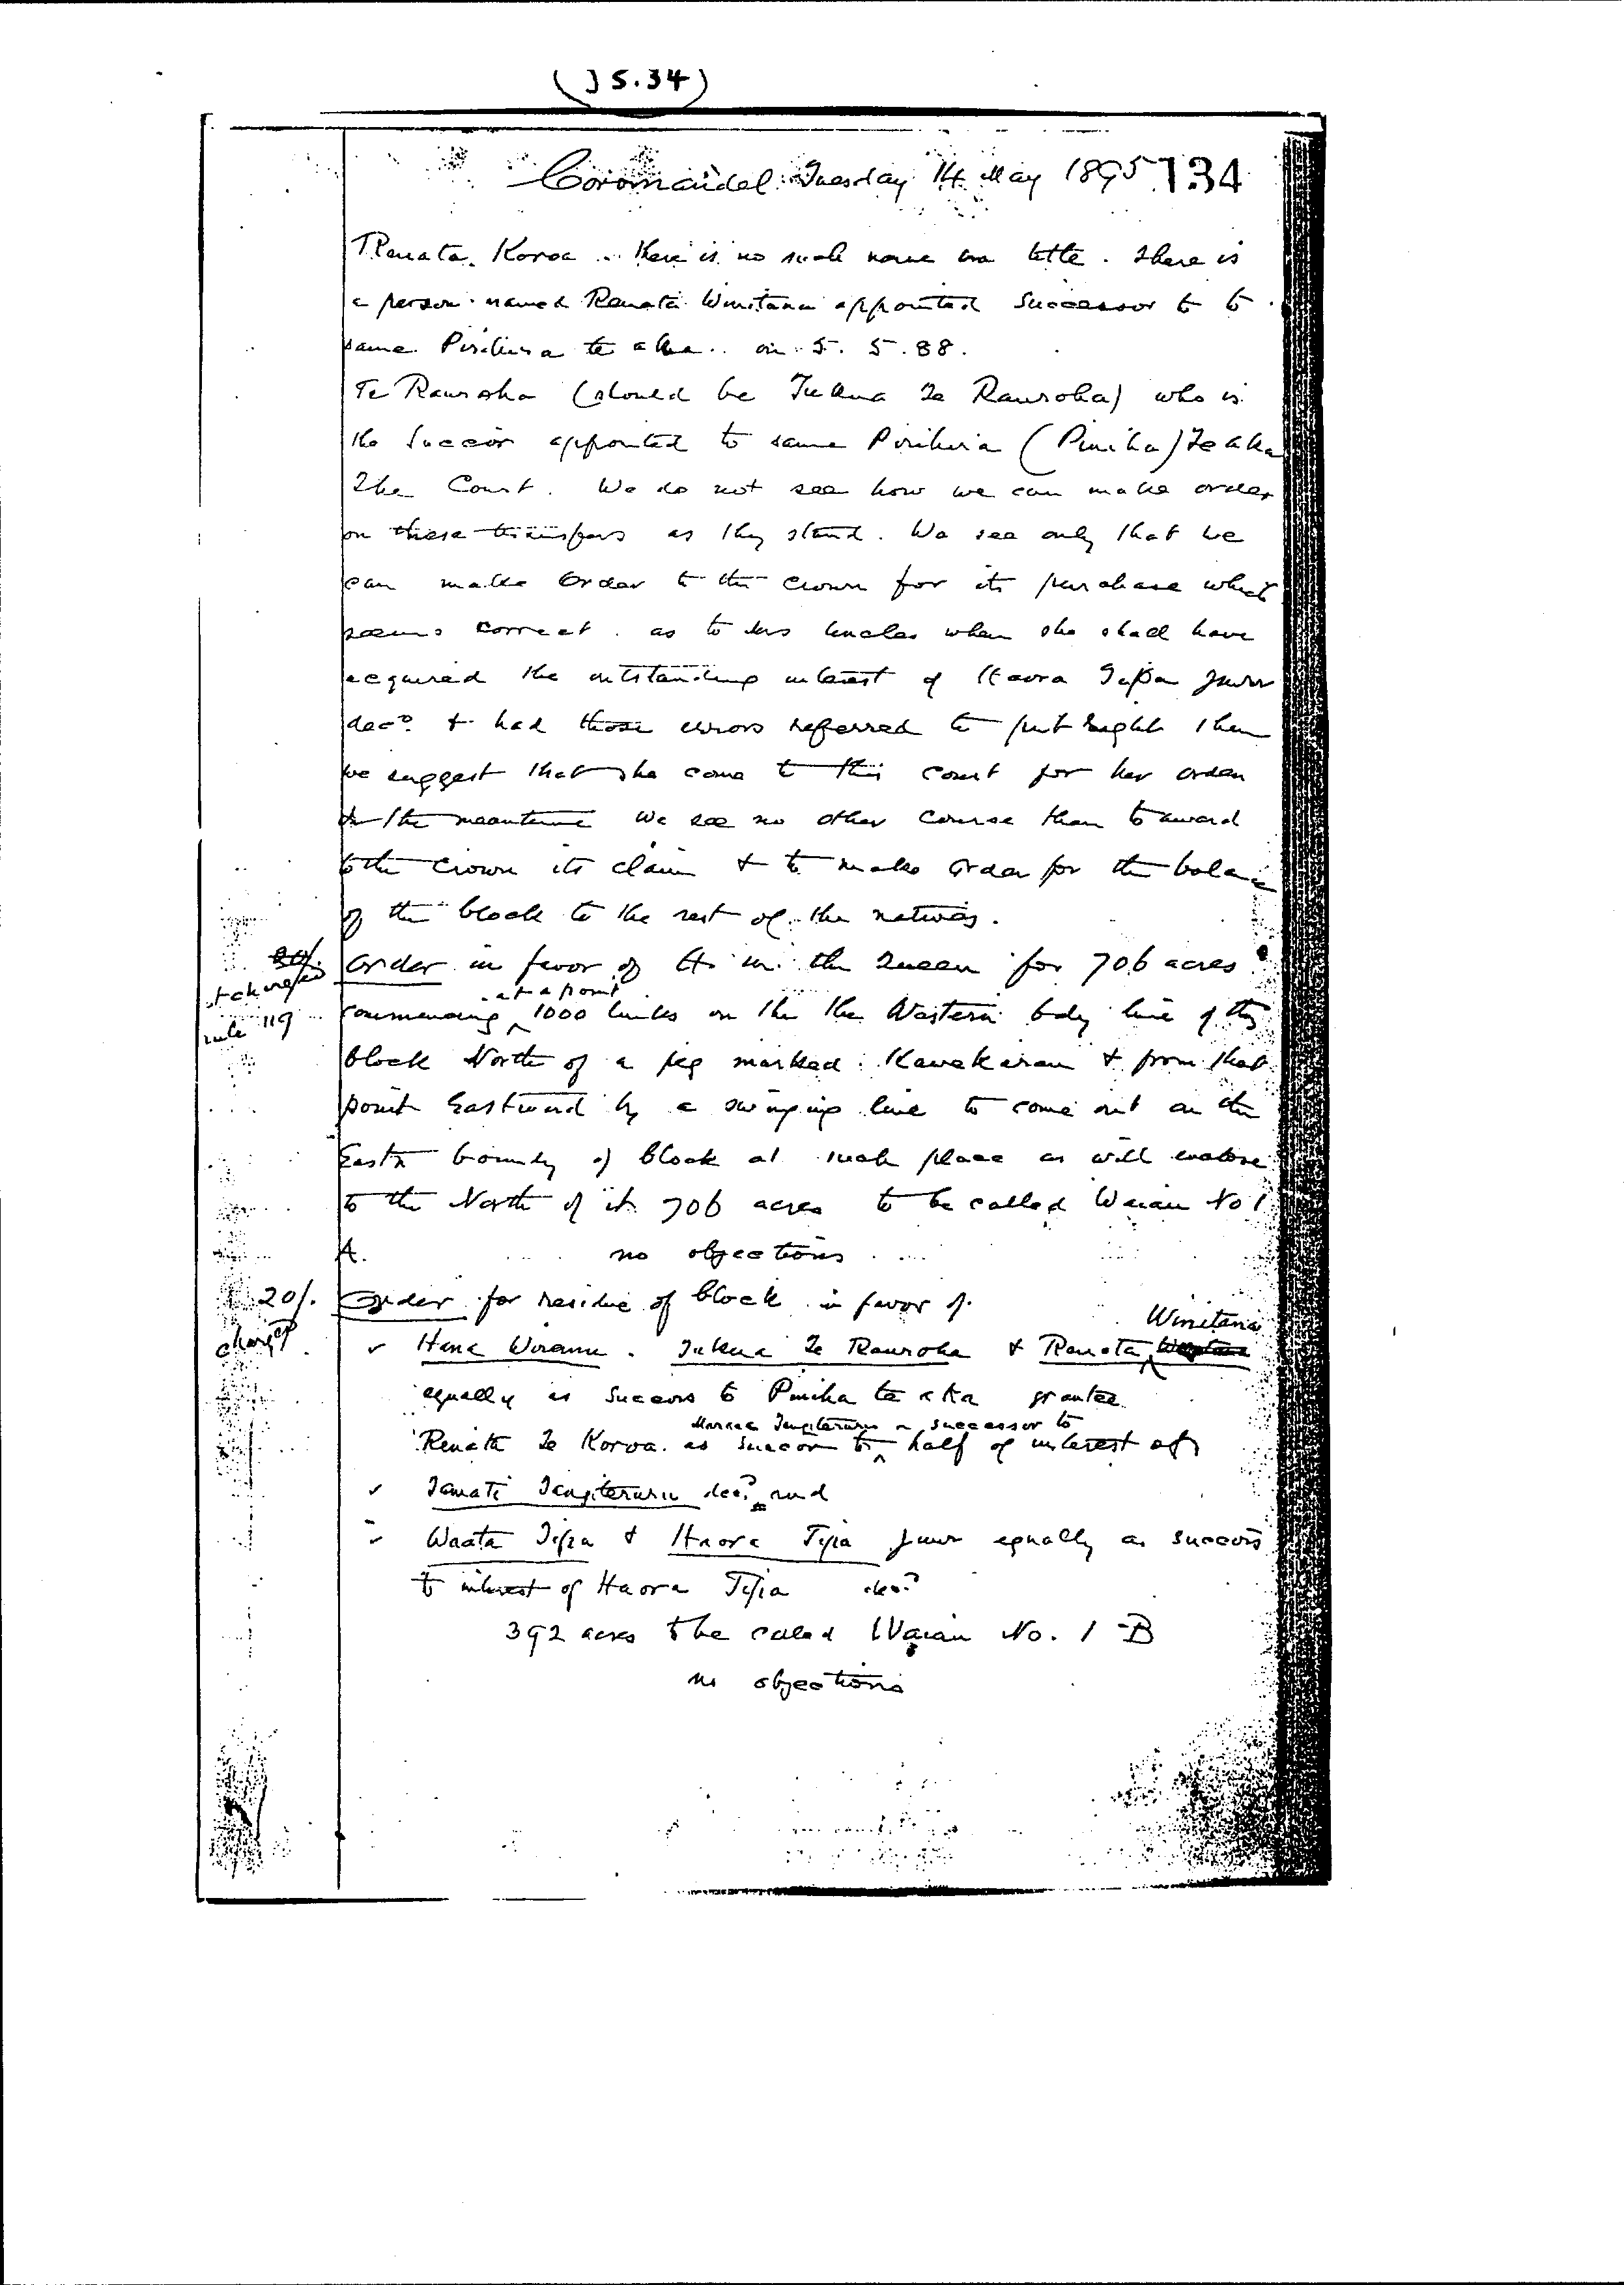 (J S.34)
Coromandel Tuesday 14 May 1895 134
Renata Koroa .. there is no such name in title. There is
a person named Renata Winitana appointed successor to to
same Pirihira te aka .. on 5. 5. 88.
Te Rauroha (should be Tukua Te Rauroha) who is
the Succor appointed to same Pirihira (Piniha) Te aka
The Court. We do not see how we can make order
on these transfers as they stand. We see only that we
can make order to the Crown for its purchase which
seems correct. as to Mrs when she shall have
acquired the outstanding interest of Haora Tipa Junr
decd. & had those errors referred to put right then
we suggest that she come to this court for her order
In the meantime we see no other course than to award
to the Crown its claim & to make order for the balance
of the block to the rest of the natives.
20/.
not charged
rule 119
Order in favor of H. M. the Queen for 706 acres
at a point
commencing 1000 links on the the Western bdy line of the
block North of a peg marked Kawakaran & from that
point Eastward by a swinging line to come out on the
Eastn boundy of block at such place as will enclose
to the North of it 706 acres to be called Waiau No 1
A. no objections
20/.
charged
Order for residue of block in favor of
Winitana
Hana Wiremu. Tukua Te Rauroha & Renata
equally as succors to Piniha te aka grantee
Tengiteruru as successor to
Renata Te Koroa as succor to half of interest of
Tamati Tengiteruru decd. and
Waata Tipa & Haora Tipa Junr equally as succors
to interest of Haora Tipa decd.
392 acres to be called Waiau No. 1 B
no objections